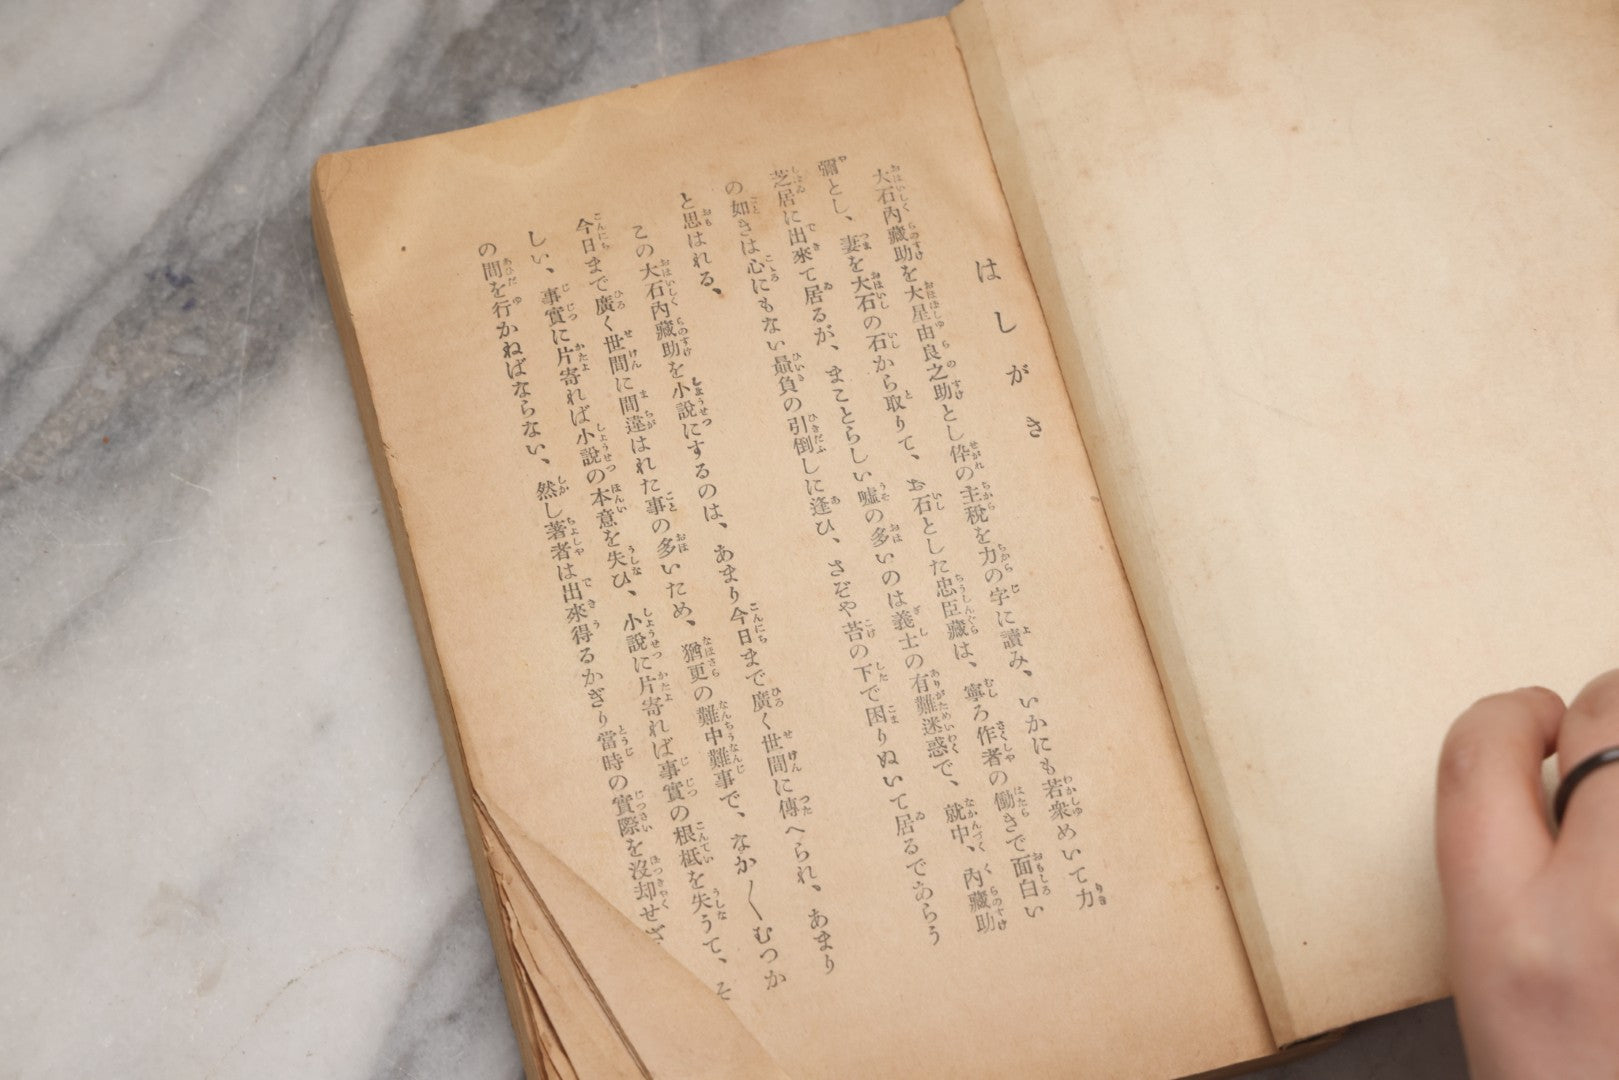 はしがき
大石內藏助を大星由良之助とし伜の主税を力の字に讀み、いかにも若衆めいて力
彌とし、妻を大石の石から取りて、お石とした忠臣藏は、寧ろ作者の働きで面白い
芝居に出來て居るが、まことらしい嘘の多いのは義士の有難迷惑で、就中、內藏助
の如きは心にもない贔負の引倒しに逢ひ、さぞや苔の下で困りぬいて居るであらう
と思はれる、
この大石內藏助を小說にするのは、あまり今日まで廣く世間に傳へられ、あまり
今日まで廣く世間に間違はれた事の多いため、猶更の難中難事で、なか〱むつか
しい、事實に片寄れば小說の本意を失ひ、小說に片寄れば事實の根柢を失うて、そ
の間を行かねばならない、然し著者は出來得るかぎり當時の實際を沒却せざ